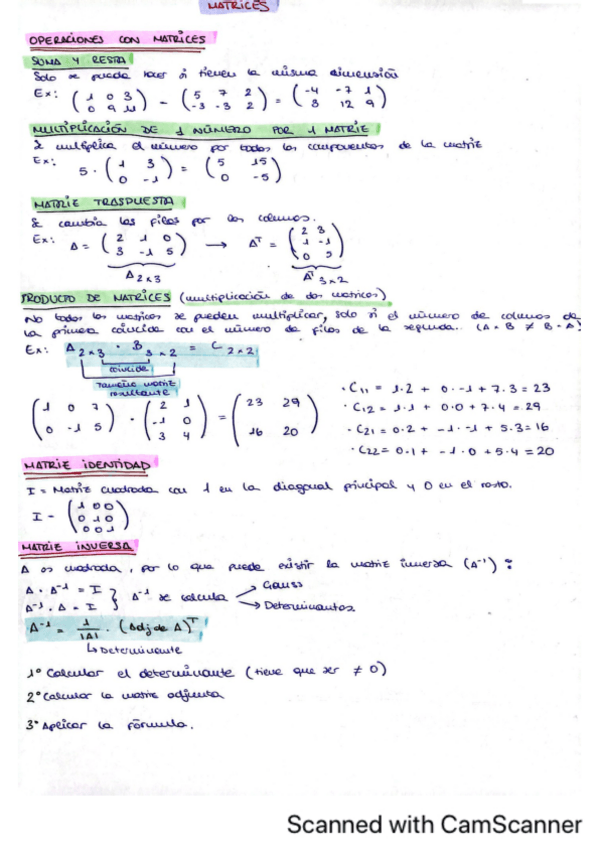 MATRICES
OPERACIONES CON MATRICES
SUMA Y RESTA
Solo se puede hacer si tienen la misma dimensión
Ex: (1 0 3 / 0 9 11) - (5 7 2 / -3 -3 2) = (-4 -7 1 / 3 12 9)
MULTIPLICACIÓN DE 1 NÚMERO POR 1 MATRIZ
Se multiplica el número por todos los componentes de la matriz
Ex: 5 · (1 3 / 0 -1) = (5 15 / 0 -5)
MATRIZ TRASPUESTA
Se cambia las filas por las columnas.
Ex: A = (2 1 0 / 3 -1 5) → Aᵀ = (2 3 / 1 -1 / 0 5)
A 2x3 Aᵀ 3x2
PRODUCTO DE MATRICES (multiplicación de dos matrices)
No todas las matrices se pueden multiplicar, solo si el número de columnas de
la primera coincide con el número de filas de la segunda.. (A · B ≠ B · A)
Ex: A 2x3 · B 3x2 = C 2x2
coincide
Tamaño matriz
resultante
(1 0 7 / 0 -1 5) · (2 1 / -1 0 / 3 4) = (23 29 / 16 20)
· C11 = 1·2 + 0·-1 + 7·3 = 23
· C12 = 1·1 + 0·0 + 7·4 = 29
· C21 = 0·2 + -1·-1 + 5·3 = 16
· C22 = 0·1 + -1·0 + 5·4 = 20
MATRIZ IDENTIDAD
I = Matriz cuadrada con 1 en la diagonal principal y 0 en el resto.
I - (1 0 0 / 0 1 0 / 0 0 1)
MATRIZ INVERSA
A es cuadrada, por lo que puede existir la matriz inversa (A⁻¹) :
A · A⁻¹ = I
A⁻¹ · A = I } A⁻¹ se calcula → Gauss
→ Determinantes
A⁻¹ = 1/|A| · (Adj de A)ᵀ
↳ Determinante
1º Calcular el determinante (tiene que ser ≠ 0)
2º Calcular la matriz adjunta
3º Aplicar la fórmula.
Scanned with CamScanner